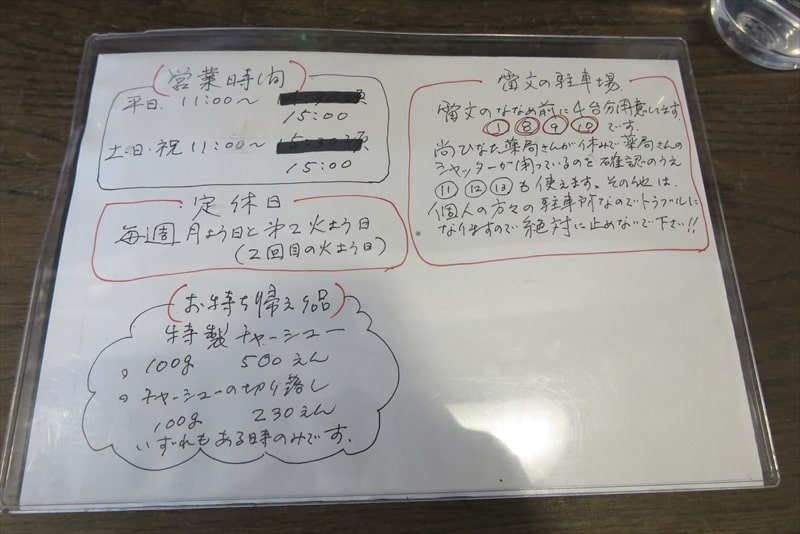 営業時間
平日 11:00〜
15:00
土・日・祝 11:00〜 15:30頃
15:00
定休日
毎週 月よう日と第2火よう日
(2回目の火よう日)
お持ち帰え品
特製チャーシュー
100g 500えん
チャーシューの切り落し
100g 230えん
いずれもある時のみです.
雷文の駐車場
雷文のななめ前に4台分用意してます.
① ⑧ ⑨ ⑩ です.
尚ひなた薬局さんが休みで薬局さんの
シャッターが閉っているのを確認のうえ
⑪ ⑫ ⑬ も使えます。その他は、
個人の方々の駐車所なのでトラブルに
なりますので絶対に止めないで下さい!!